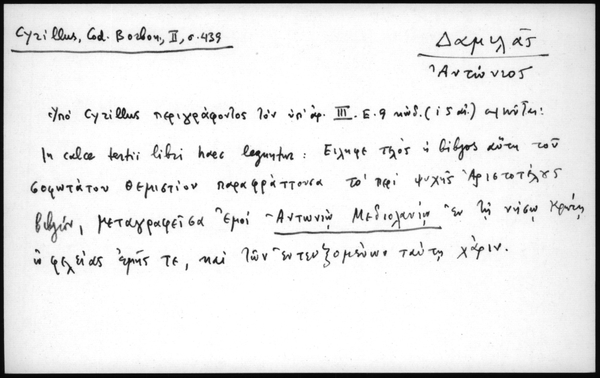 Cyrillus, Cod. Borbon., II, σ. 439
Δαμιλᾶς
Ἀντώνιος
Ὑπὸ Cyrillus περιγράφοντος τὸν ὑπ' ἀρ. III. E. 9 κώδ. (15 αἰ.)
In calce tertii libri haec leguntur: Είληφε τέλος ἡ βίβλος αὕτη τοῦ
σοφωτάτου Θεμιστίου παραφράττουσα τὸ πρὶ ψυχῆς Ἀριστοτέλους
βιβλίον, μεταγραφεῖσα Ἐμοὶ Ἀντωνίῳ Μεδιολανίῳ Ἐν τῇ νήσῳ Κρήτῃ
ὠφελείας ἐμῆς τε, καὶ τῶν ἐντευξομένων ταύτῃ χάριν.